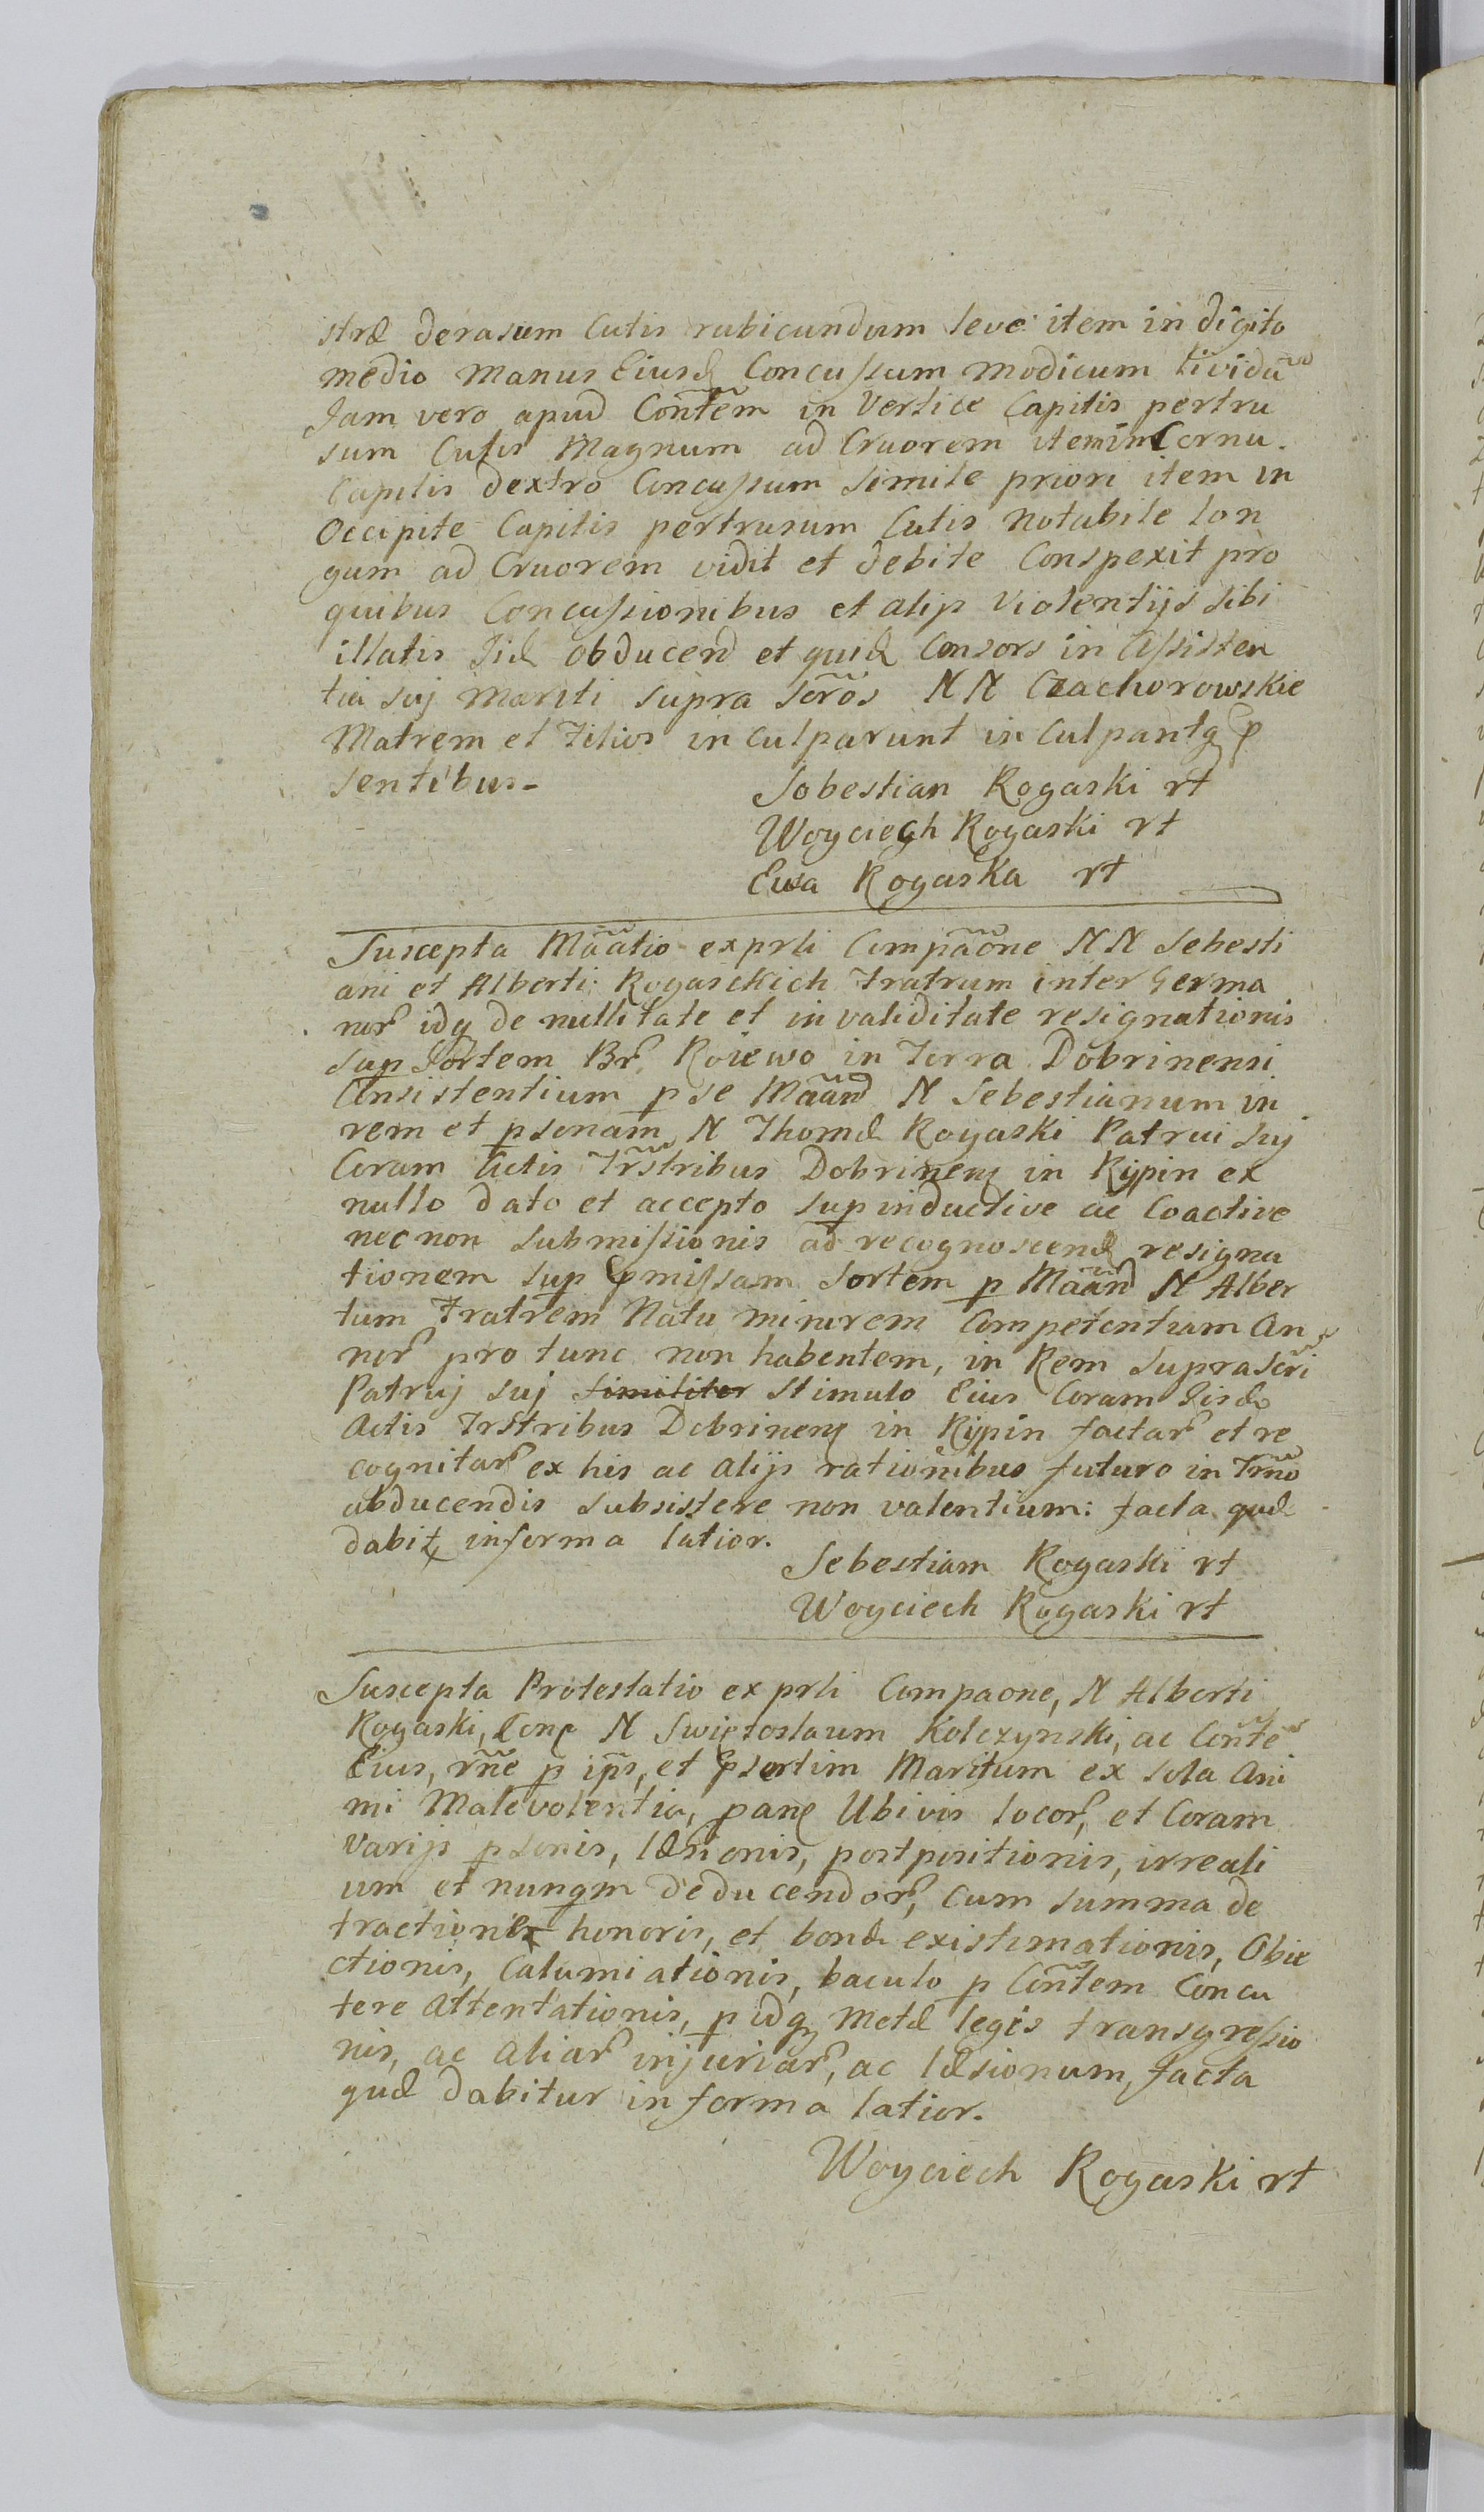 stræ derasum Cutis rubicundum leve item in digito
medio manus Eiusd Concussum modicum lividũ
Jam vero apud Conñtem in Vertice Capitis pertru
sum Cutis Magnum ad Cruorem item in Cornu
Capitis dextro Concussum simile priori item in
Occipite Capitis pertrusum Cutis notabile lon
gum ad Cruorem vidit et debite Conspexit pro
quibus Concussionibus et alijs Violentijs sibi
illatis Jid obducend et quid Consors in Assisten
tia suj mariti supra scrõs NN Czachorowskie
Matrem et Filios in culparunt in culpantq p
sentibus-
Sobestian Rogaski rt
Woyciech Rogaski rt
Ewa Rogaska rt
Suscepta Mããtio ex prli Compãone NN Sebesti
ani et Alberti Rogasckich Fratrum inter Germa
nor idq de nullitate et invaliditate resignationis
sup Sortem Br Roiewo in Terra Dobrinensi
Consistentium p se Mããnd N Sebestianum in
rem et psonam N Thomæ Rogaski Patrui Suj
Coram Actis Trstribus Dobrinen in Rijpin ex
nullo dato et accepto sup inductive ac Coactive
nec non submissionis ad recognoscend resigna
tionem sup pmissam sortem p Mããnd N Alber
tum Fratrem Natu minorem Competentiam An
nor pro tunc non habentem, in Rem suprascri
Patruj suj similiter stimulo Eius Coram Eisd
Actis Trstribus Dobrinen in Rijpin factar et re
cognitar ex his ac alijs rationibus futuro in Trno
abducendis subsistere non valentium: facta quæ
dabit informa latior.
Sebestiam Rogaski rt
Woyciech Rogaski rt
Suscepta Protestatio ex prli Compaone, N Alberti
Rogaski, Conc N Swiętoslaum Kolczynski, ac Conte
Eius, rñe p ips, et psertim Maritum ex sola Ani
mi Malevolentia, pane Ubivis locor, et Coram
varijs psonis, læsionis, postpositionis, irreali
um et nunqm deducendor, cum summa de
tractionis honoris, et bonæ existimationis, Obie
ctionis, Calumiationis, baculo p Cõntem Concu
tere Attentationis, p idq metæ legis transgressio
nis, ac aliar injuriar, ac læsionum, facta
quæ dabitur in forma latior.
Woyciech Rogaski rt